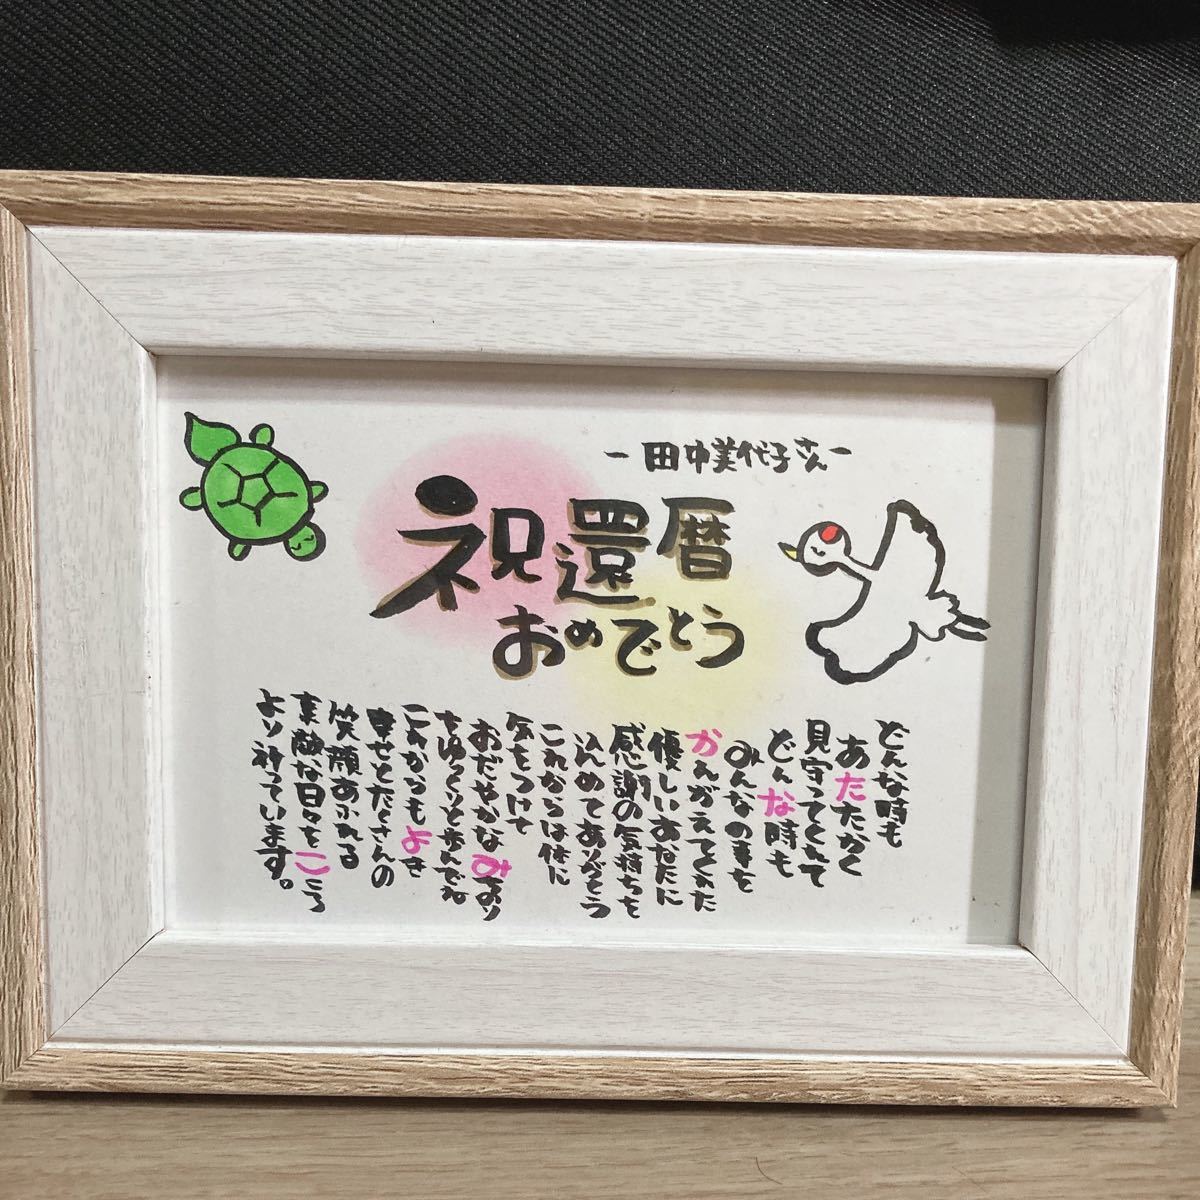 ー田中美代子さんー
祝還暦
おめでとう
どんな時も
あたたかく
見守ってくれて
どんな時も
みんなの事を
かんがえてくれた
優しいあなたに
感謝の気持ちを
込めてありがとう
これからは体に
気をつけて
おだやかなみのり
をゆっくりと歩んでね
これからもよき
幸せとたくさんの
笑顔あふれる
素敵な日々をこころ
より祈っています。